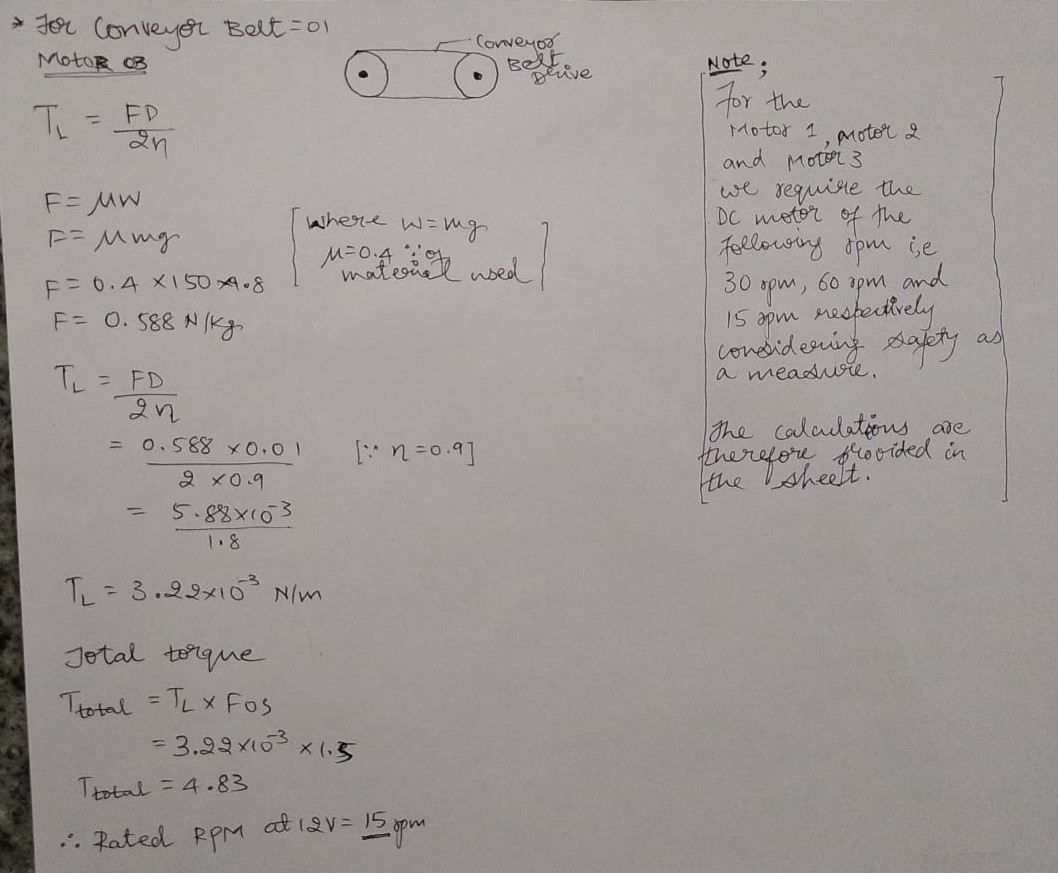 * For Conveyor Belt = 01
Motor 03
Conveyor
Belt
Drive
T_L = FD / 2η
F = μW
F = μmg
F = 0.4 × 150 × 9.8
F = 0.588 N/kg
[where w = mg
μ = 0.4 ∵ of
material used]
T_L = FD / 2η
= 0.588 × 0.01 / 2 × 0.9 [∵ η = 0.9]
= 5.88×10^-3 / 1.8
T_L = 3.22×10^-3 N/m
Total torque
T_total = T_L × FOS
= 3.22×10^-3 × 1.5
T_total = 4.83
∴ Rated RPM at 12V = 15 rpm
Note:
For the
Motor 1, motor 2
and Motor 3
we require the
DC motor of the
following rpm i,e
30 rpm, 60 rpm and
15 rpm respectively
considering safety as
a measure.
The calculations are
therefore provided in
the sheet.